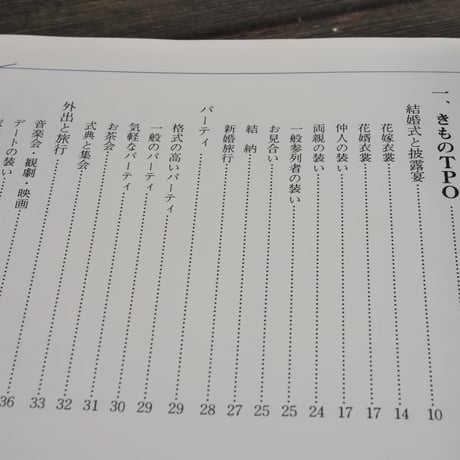 一、きものTPO
結婚式と披露宴
花嫁衣裳
花婿衣裳
仲人の装い
両親の装い
一般参列者の装い
お見合い
結 納
新婚旅行
パーティ
格式の高いパーティ
一般のパーティ
気軽なパーティ
お茶会
式典と集会
外出と旅行
音楽会・観劇 映画
デートの装い
10
14
17
17
24
25
25
27
28
29
29
30
31
32
33
36